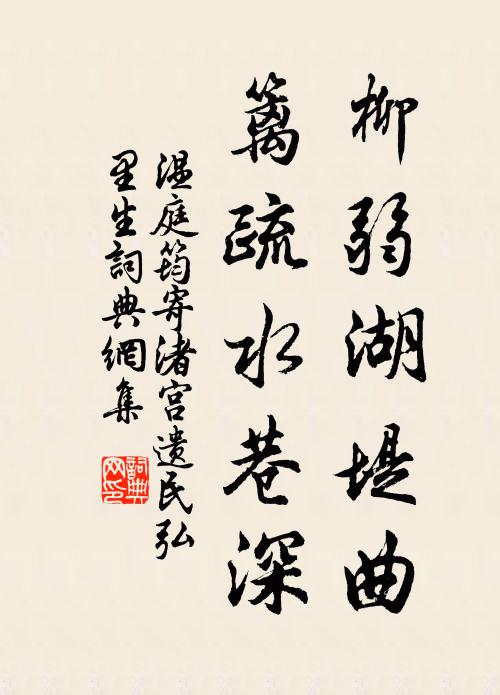 柳弱湖堤曲
籬疏水巷深
温庭筠寄渚宫遗民弘
里生詞典網集
詞典
网印